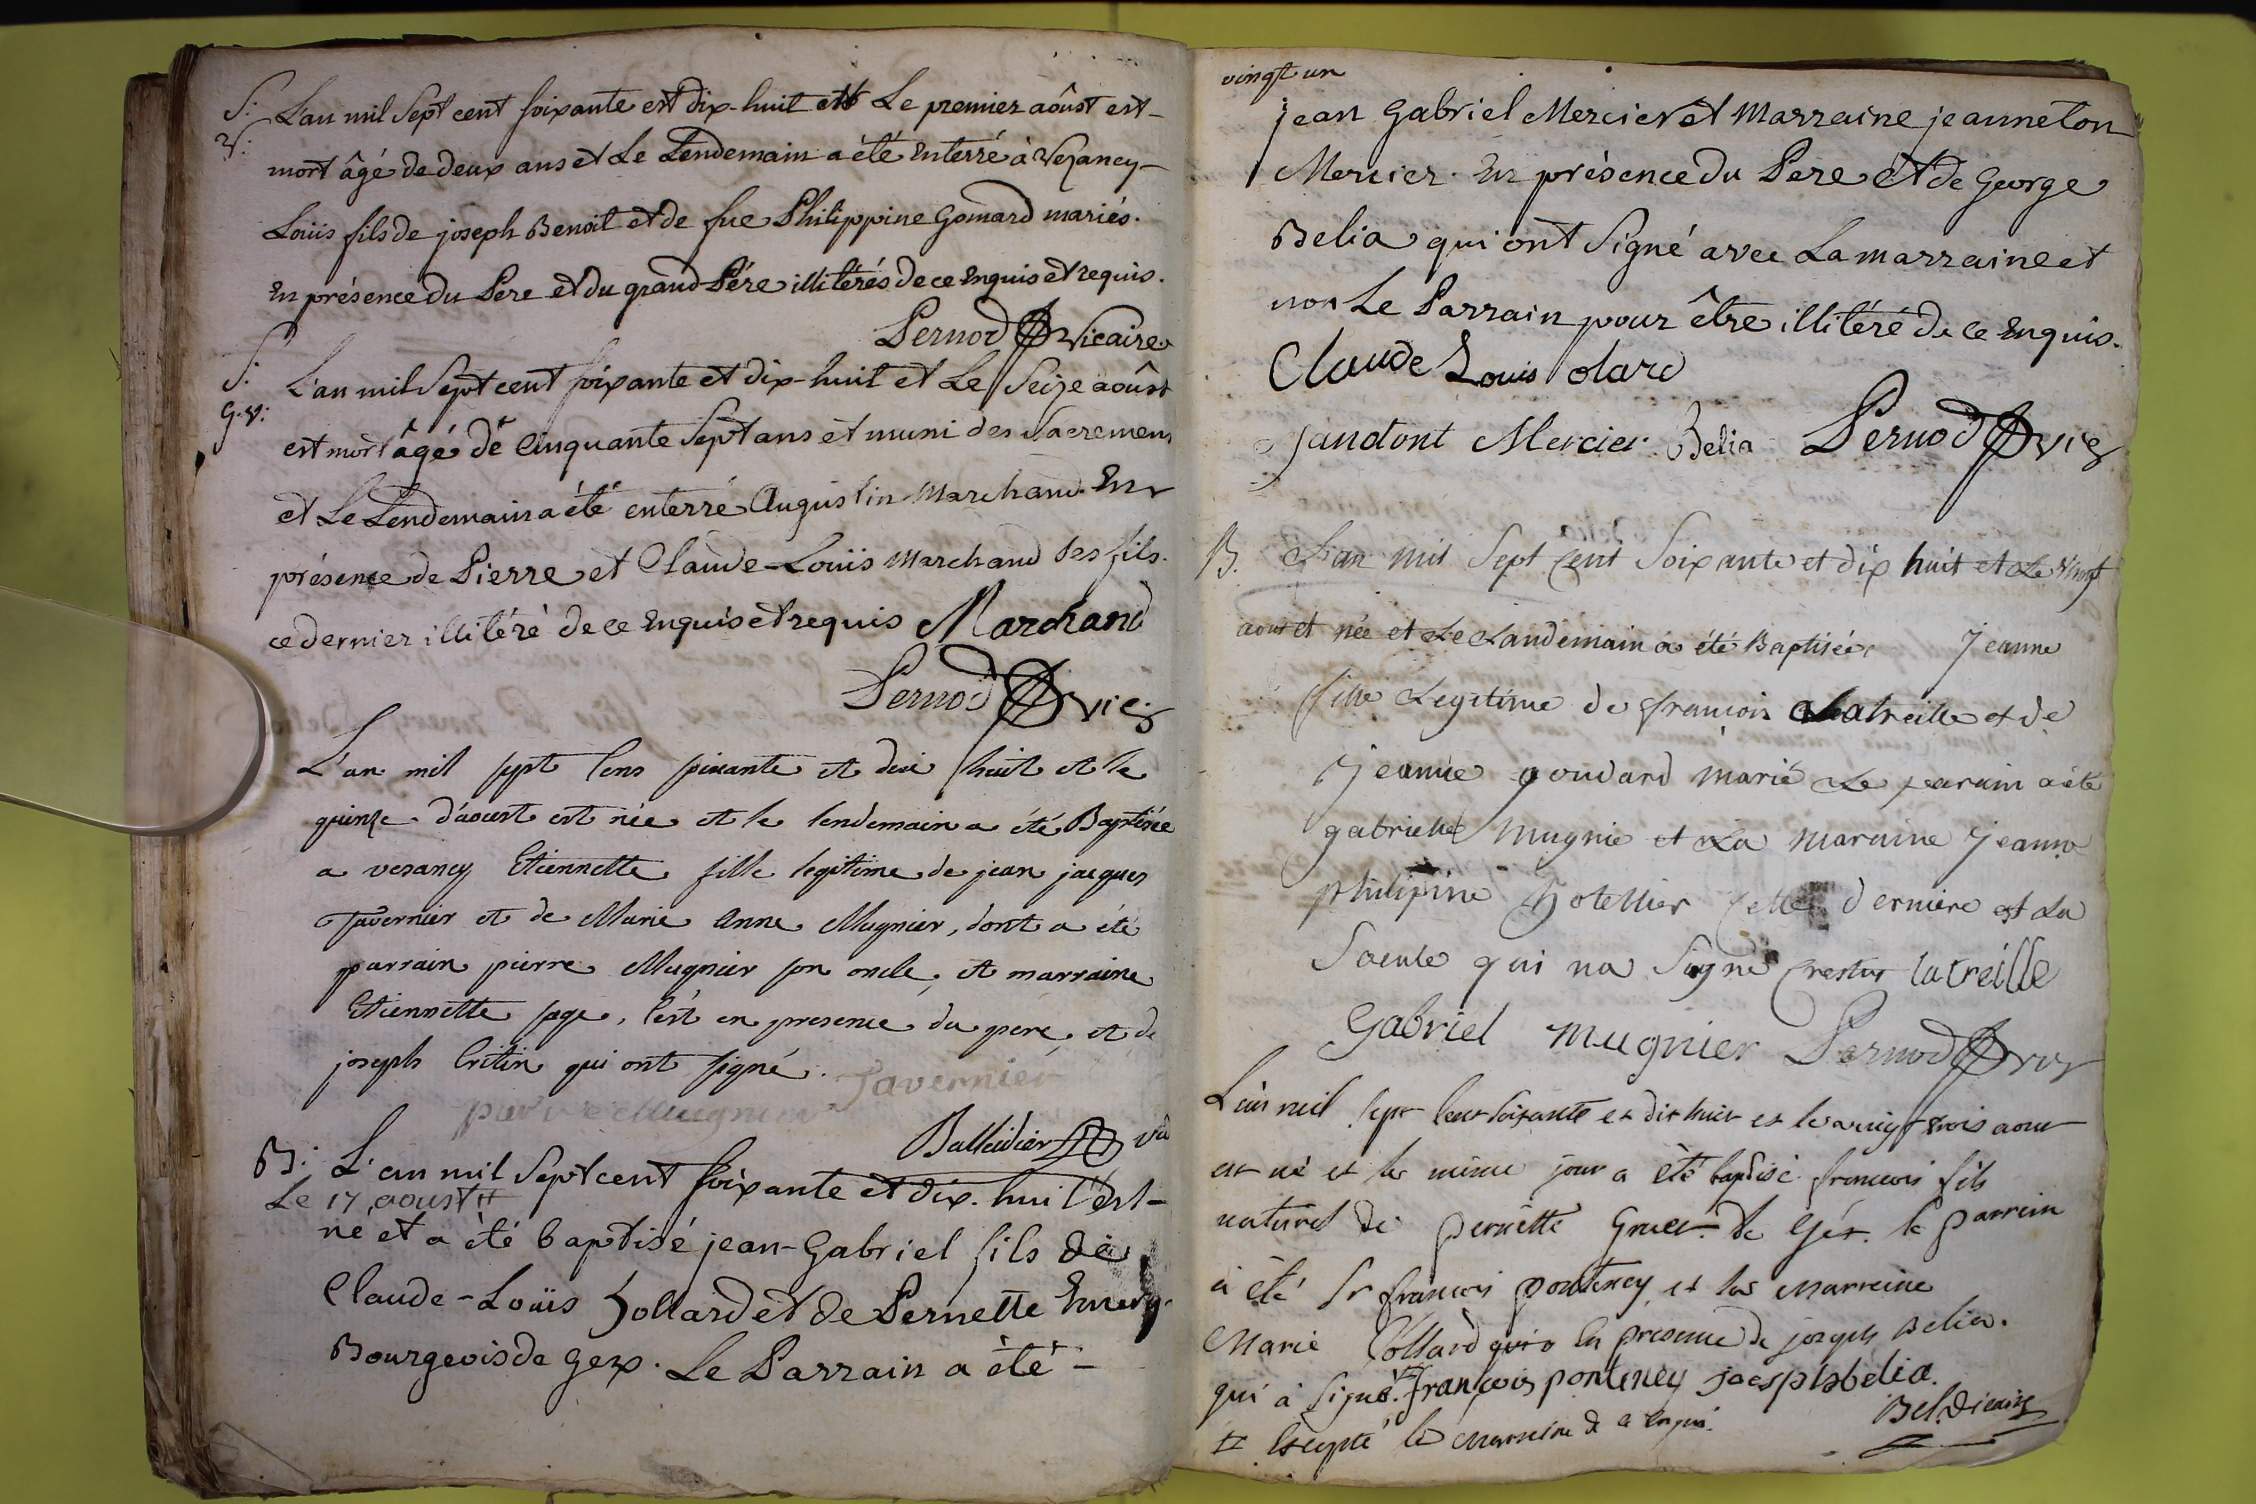 S: L'an mil Sept cent soixante et dix-huit et Le premier aôust est-
V: mort âgé de deux ans et Le Lendemain a été Enterré à Vezancy-
Loüis fils de joseph Benoit et de fue Philippine Gomard mariés.
En présence du Pere et du grand Pére illitérés de ce Enquis et requis.
Pernod Vicaire
S: L'an mil Sept cent soixante et dix-huit et Le Seize aôust
G.V: est mort âgé de Cinquante Sept ans et muni des Sacremens
et Le Lendemain a été enterré Augustin Marchand. En
présence de Pierre et Claude-Loüis Marchand ses fils.
ce dernier illitéré de ce Enquis et requis Marchand
Pernod vic
L'an mil sept cens soixante et dix huit et le
quinze d'aoust est née et le lendemain a été Baptisée
a vesancy Etiennette fille legitime de jean jacques
Tavernier et de Marie Anne Mugnier, dont a été
parrain pierre Mugnier son oncle, et marraine
Etiennette sage, c'est en presence du pere, et de
joseph Critin qui ont signé.
Tavernier
pierre Mugnier
Balleidier
B: L'an mil Sept cent soixante et dix-huit est-
Le 17 aoust
né et a été baptisé jean-Gabriel fils de
Claude-Loüis hollard et de Pernette Emery
Bourgeois de Gex. Le Parrain a été-
vingt un
jean Gabriel Mercier et Marraine jeanneton
Mercier. En présence du Pere et de George
Belia qui ont Signé avec La marraine et
non Le Parrain pour être illitéré de ce Enquis.
Claude Louis olard
jandont Mercier Belia Pernod vic
B. L'an mil Sept Cent Soixante et dix huit et Le vingt
aout et née et Le Landemain a été Baptisée jeanne
fille Legitime de françois Latreille et de
Jeanne goudard marié Le parain a été
gabrielle Mugnie et La maraine jeanne
philipine hotellier cette derniere est La
Seule qui na Signé latreille
Gabriel mugnier Pernod vic
L'an mil sept cent soixante et dix huit et le vingt trois aout
est né et le meme jour a été baptisé francois fils
naturel de pernette Gruet de Gex. le parrein
a été Sr francois pontency et la marreine
Marie Collard en presence de joseph Belia.
qui a signé. françois ponteney joesph belia.
Excepté la marreine de ce enquis. Bel. Vicaire